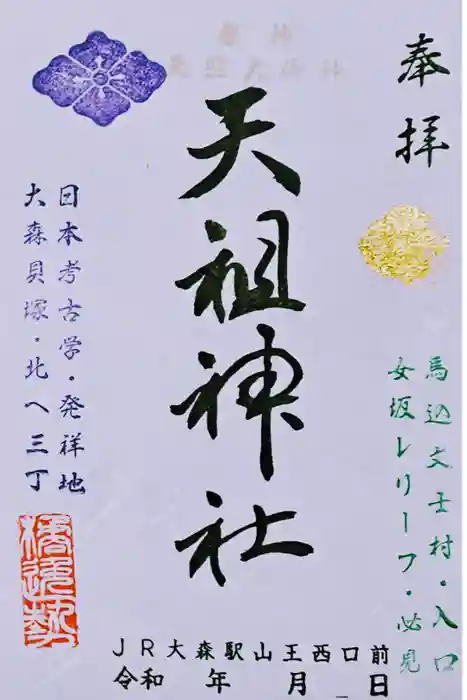 奉拝
馬込文士村・入口
女坂レリーフ・必見
天照大御神
天祖神社
日本考古学・発祥地
大森貝塚・北へ三丁
JR大森駅山王西口前
令和 年 月 日